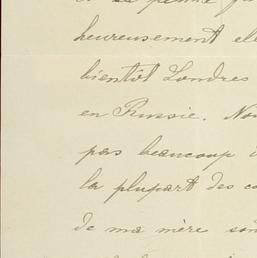 heureusement ele
bientôt Londres
en Russie. Nou
pas beaucoup
la plupart des co
de ma mère son